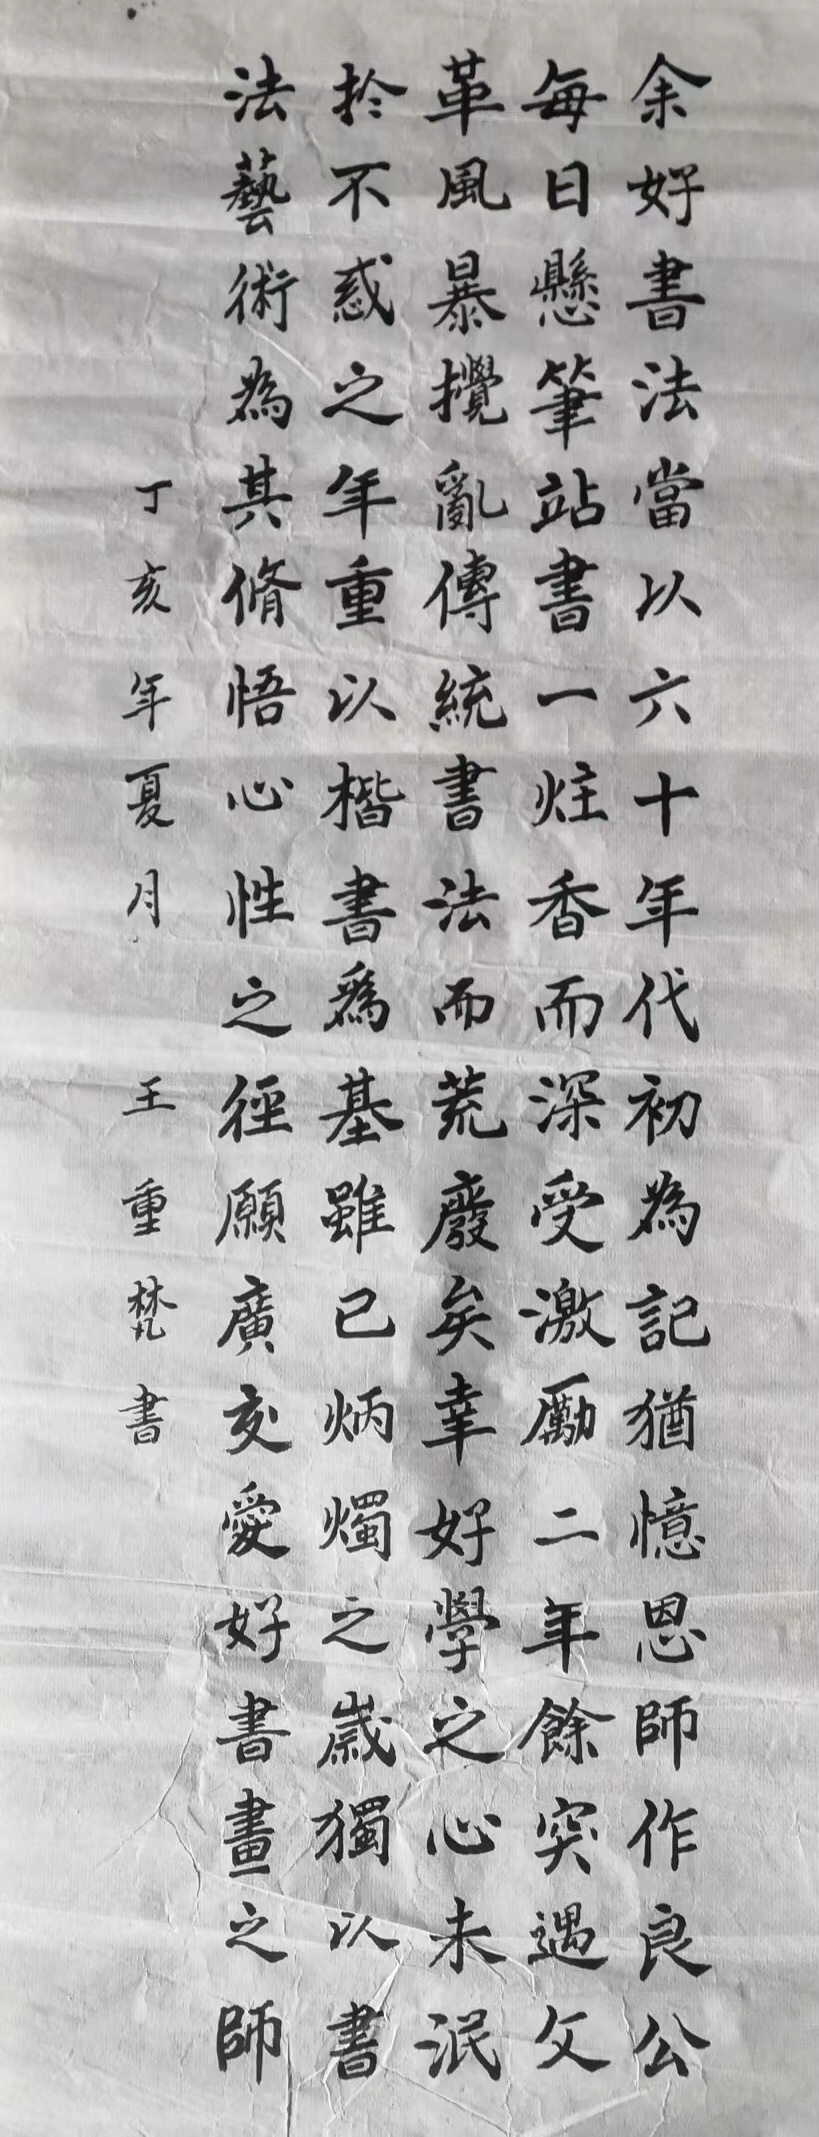 余好書法當以六十年代初為記猶憶恩師作良公
每日懸筆站書一炷香而深受激勵二年餘突遇文
革風暴攪亂傳統書法而荒廢矣幸好學之心未泯
扵不惑之年重以楷書爲基雖已炳燭之歲獨以書
法藝術為其脩悟心性之徑願廣交愛好書畫之師
丁亥年夏月 王重梵書